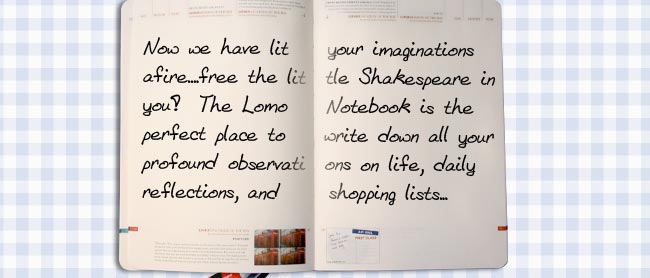 Now we have lit your imaginations
afire....free the little Shakespeare in
you? The Lomo Notebook is the
perfect place to write down all your
profound observations on life, daily
reflections, and shopping lists...
FIRST CLASS